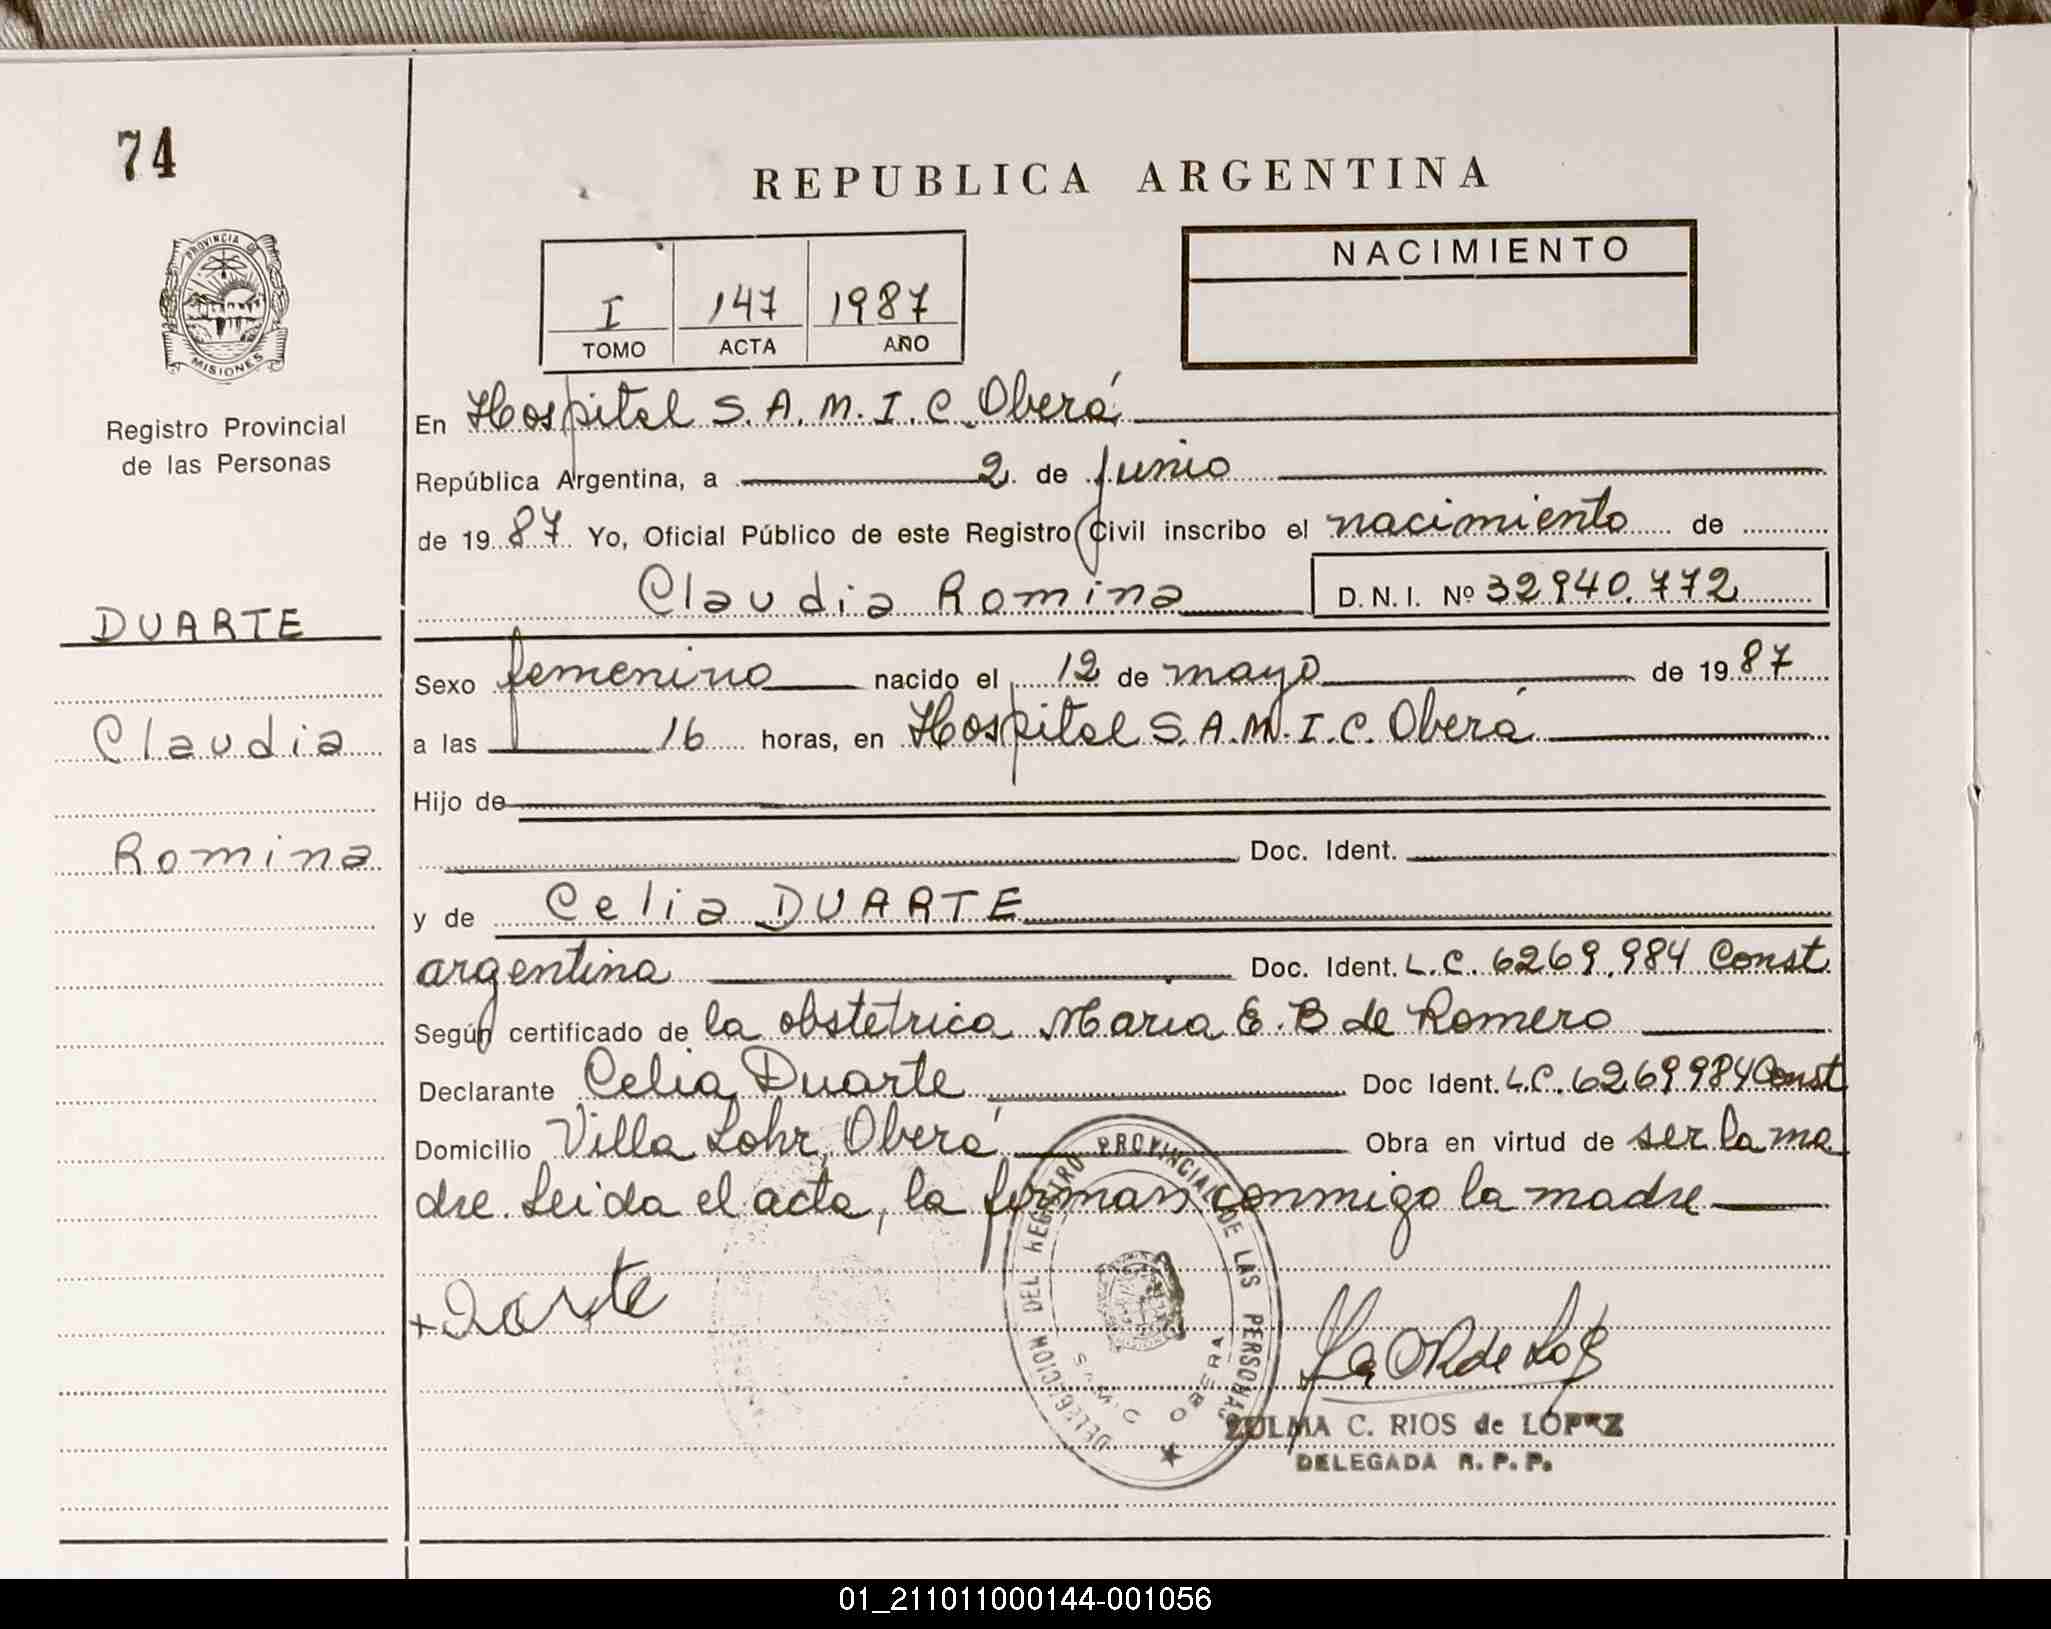 74
REPUBLICA ARGENTINA
PROVINCIA DE
MISIONES
Registro Provincial
de las Personas
I 147 1987
TOMO ACTA AÑO
NACIMIENTO
En Hospital S.A.M.I.C. Oberá
República Argentina, a 2 de junio
de 1987 Yo, Oficial Público de este Registro Civil inscribo el nacimiento de
Claudia Romina D.N.I. Nº 32940.772
DUARTE
Claudia
Romina
Sexo femenino nacido el 12 de mayo de 1987
a las 16 horas, en Hospital S.A.M.I.C. Oberá
Hijo de
Doc. Ident.
y de Celia DUARTE
argentina Doc. Ident. L.C. 6269.984 Const
Según certificado de la obstetrica Maria E. B de Romero
Declarante Celia Duarte Doc Ident. L.C. 6269984 Const
Domicilio Villa Lohr, Oberá Obra en virtud de ser la ma
dre. Leida el acta, la firman conmigo la madre
DELEGACION DEL REGISTRO PROVINCIAL DE LAS PERSONAS
S.A.M.I.C OBERA
ZULMA C. RIOS de LOPEZ
DELEGADA R.P.P.
01_211011000144-001056